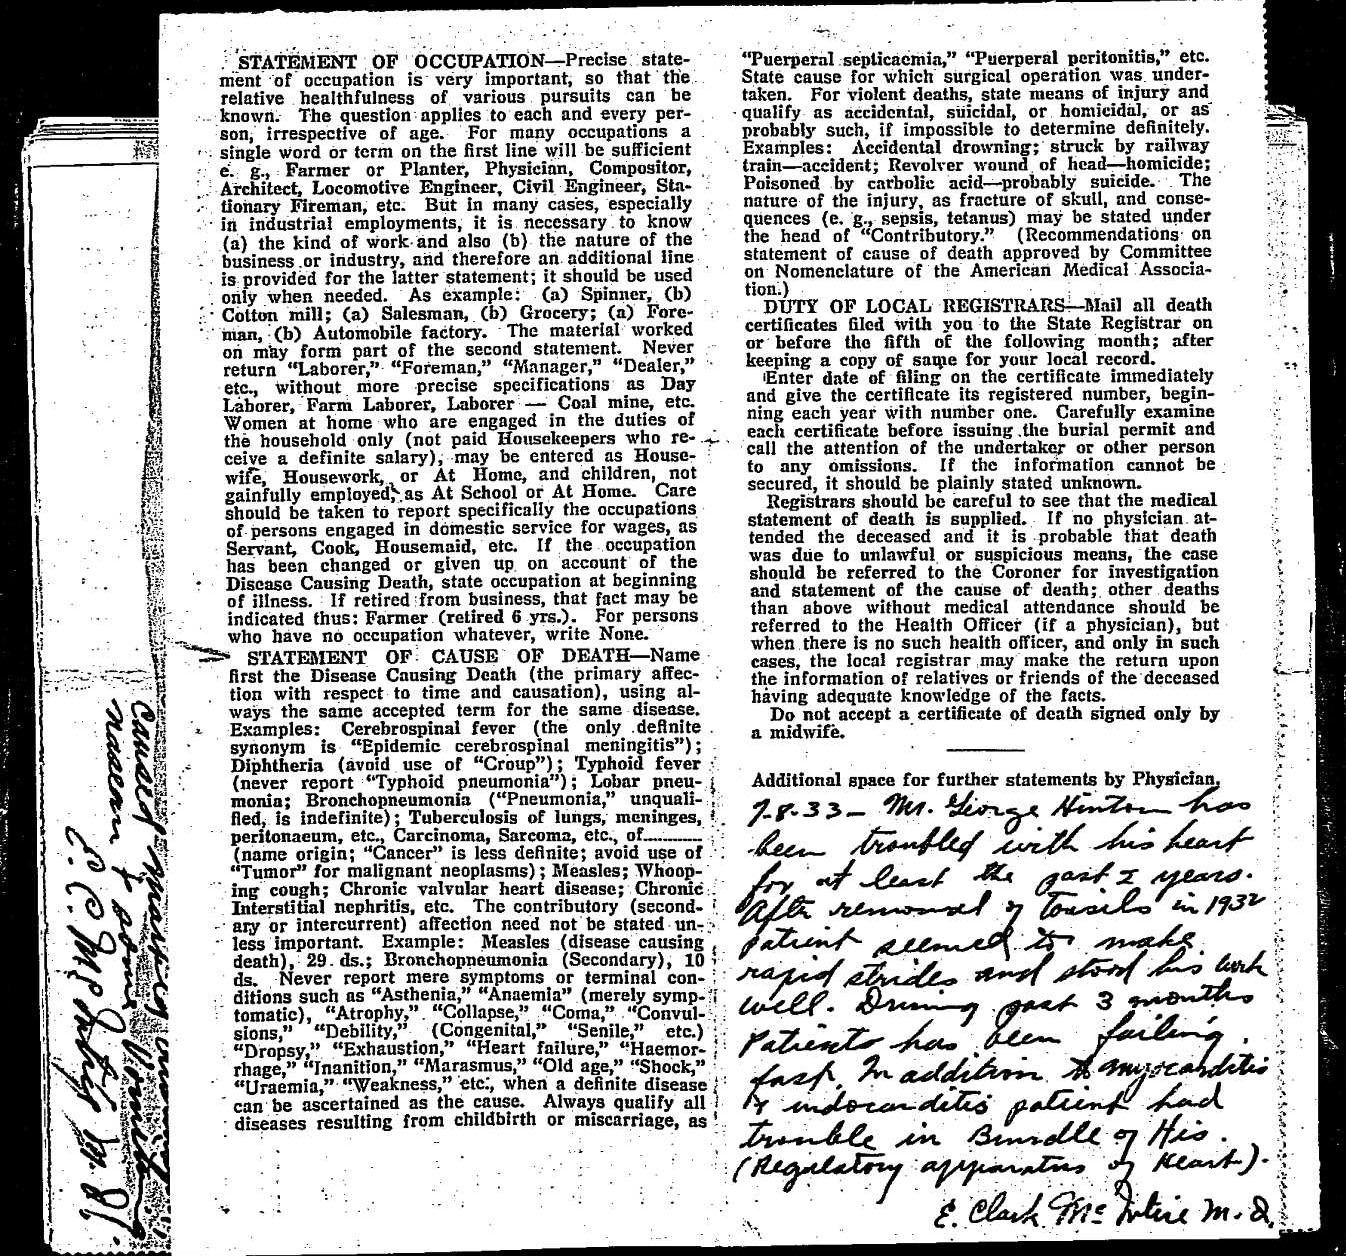 STATEMENT OF OCCUPATION—Precise state-
ment of occupation is very important, so that the
relative healthfulness of various pursuits can be
known. The question applies to each and every per-
son, irrespective of age. For many occupations a
single word or term on the first line will be sufficient
e. g., Farmer or Planter, Physician, Compositor,
Architect, Locomotive Engineer, Civil Engineer, Sta-
tionary Fireman, etc. But in many cases, especially
in industrial employments, it is necessary to know
(a) the kind of work and also (b) the nature of the
business or industry, and therefore an additional line
is provided for the latter statement; it should be used
only when needed. As example: (a) Spinner, (b)
Cotton mill; (a) Salesman, (b) Grocery; (a) Fore-
man, (b) Automobile factory. The material worked
on may form part of the second statement. Never
return "Laborer," "Foreman," "Manager," "Dealer,"
etc., without more precise specifications as Day
Laborer, Farm Laborer, Laborer — Coal mine, etc.
Women at home who are engaged in the duties of
the household only (not paid Housekeepers who re-
ceive a definite salary), may be entered as House-
wife, Housework, or At Home, and children, not
gainfully employed, as At School or At Home. Care
should be taken to report specifically the occupations
of persons engaged in domestic service for wages, as
Servant, Cook, Housemaid, etc. If the occupation
has been changed or given up on account of the
Disease Causing Death, state occupation at beginning
of illness. If retired from business, that fact may be
indicated thus: Farmer (retired 6 yrs.). For persons
who have no occupation whatever, write None.
STATEMENT OF CAUSE OF DEATH—Name
first the Disease Causing Death (the primary affec-
tion with respect to time and causation), using al-
ways the same accepted term for the same disease.
Examples: Cerebrospinal fever (the only definite
synonym is "Epidemic cerebrospinal meningitis");
Diphtheria (avoid use of "Croup"); Typhoid fever
(never report "Typhoid pneumonia"); Lobar pneu-
monia; Bronchopneumonia ("Pneumonia," unquali-
fied, is indefinite); Tuberculosis of lungs, meninges,
peritonaeum, etc., Carcinoma, Sarcoma, etc., of............
(name origin; "Cancer" is less definite; avoid use of
"Tumor" for malignant neoplasms); Measles; Whoop-
ing cough; Chronic valvular heart disease; Chronic
Interstitial nephritis, etc. The contributory (second-
ary or intercurrent) affection need not be stated un-
less important. Example: Measles (disease causing
death), 29 ds.; Bronchopneumonia (Secondary), 10
ds. Never report mere symptoms or terminal con-
ditions such as "Asthenia," "Anaemia" (merely symp-
tomatic), "Atrophy," "Collapse," "Coma," "Convul-
sions," "Debility," (Congenital," "Senile," etc.)
"Dropsy," "Exhaustion," "Heart failure," "Haemor-
rhage," "Inanition," "Marasmus," "Old age," "Shock,"
"Uraemia," "Weakness," etc., when a definite disease
can be ascertained as the cause. Always qualify all
diseases resulting from childbirth or miscarriage, as
"Puerperal septicaemia," "Puerperal peritonitis," etc.
State cause for which surgical operation was under-
taken. For violent deaths, state means of injury and
qualify as accidental, suicidal, or homicidal, or as
probably such, if impossible to determine definitely.
Examples: Accidental drowning; struck by railway
train—accident; Revolver wound of head—homicide;
Poisoned by carbolic acid—probably suicide. The
nature of the injury, as fracture of skull, and conse-
quences (e. g., sepsis, tetanus) may be stated under
the head of "Contributory." (Recommendations on
statement of cause of death approved by Committee
on Nomenclature of the American Medical Associa-
tion.)
DUTY OF LOCAL REGISTRARS—Mail all death
certificates filed with you to the State Registrar on
or before the fifth of the following month; after
keeping a copy of same for your local record.
Enter date of filing on the certificate immediately
and give the certificate its registered number, begin-
ning each year with number one. Carefully examine
each certificate before issuing the burial permit and
call the attention of the undertaker or other person
to any omissions. If the information cannot be
secured, it should be plainly stated unknown.
Registrars should be careful to see that the medical
statement of death is supplied. If no physician at-
tended the deceased and it is probable that death
was due to unlawful or suspicious means, the case
should be referred to the Coroner for investigation
and statement of the cause of death; other deaths
than above without medical attendance should be
referred to the Health Officer (if a physician), but
when there is no such health officer, and only in such
cases, the local registrar may make the return upon
the information of relatives or friends of the deceased
having adequate knowledge of the facts.
Do not accept a certificate of death signed only by
a midwife.
Additional space for further statements by Physician.
7-8-33 - Mr. George Hinton has
been troubled with his heart
for at least the past 2 years.
After removal of tonsils in 1932
patient seemed to make
rapid strides and stood his work
well. During past 3 months
Patients has been failing
fast. In addition to myocarditis
& endocarditis patient had
trouble in Bundle of His.
(Regulatory apparatus of Heart).
E. Clark McIntire M. D.
Caused
nausea & some Vomiting
E. C. McIntire M. D.